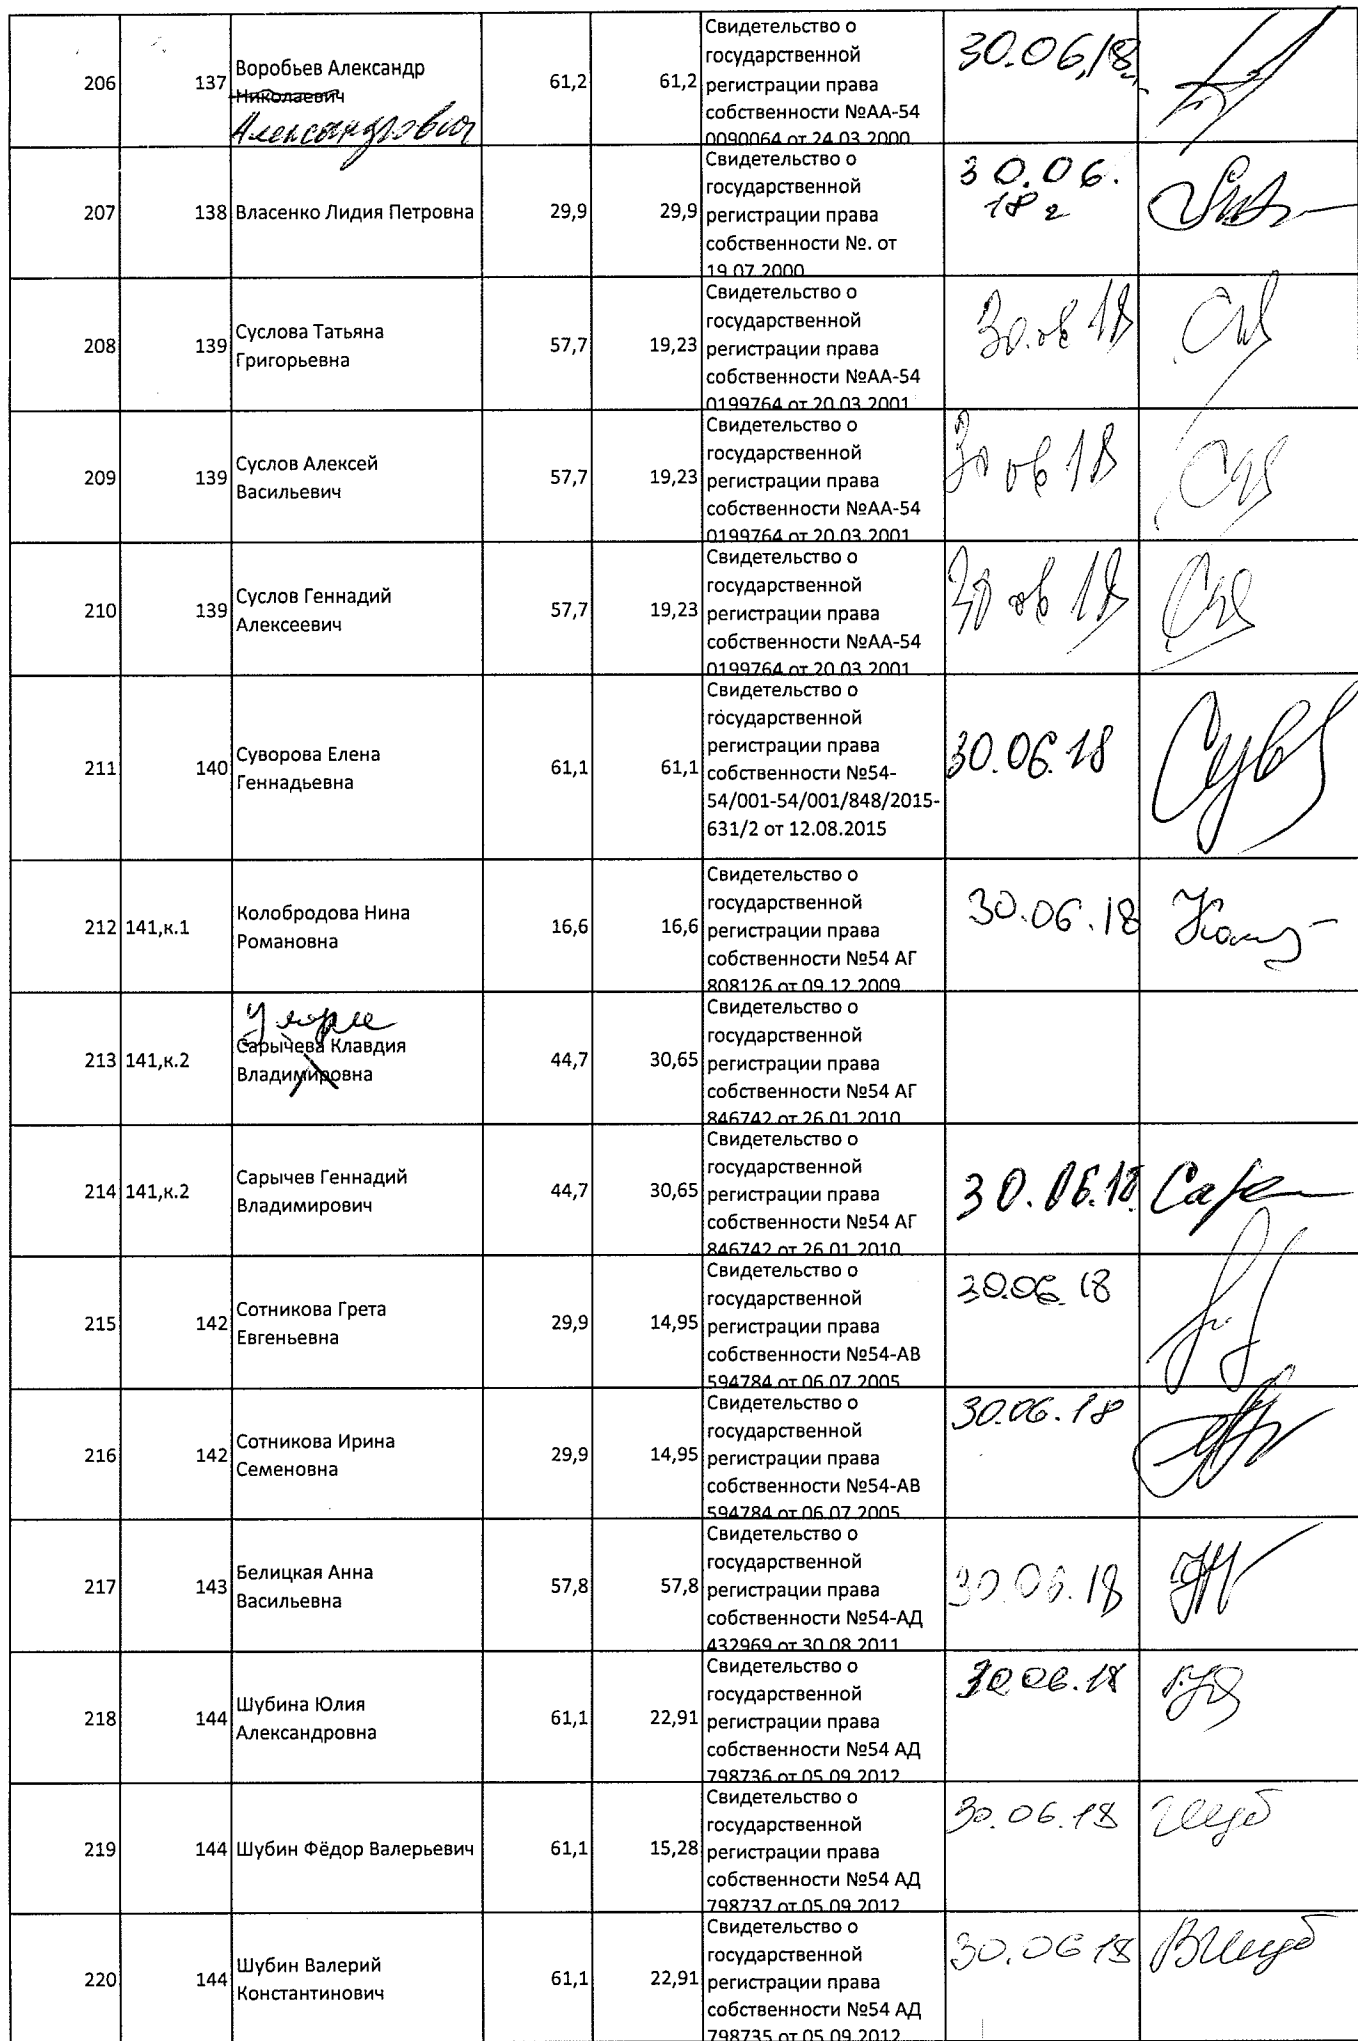 206 137 Воробьев Александр Николаевич 61,2 61,2 Свидетельство о
государственной
регистрации права
собственности №АА-54
0090064 от 24.03.2000
30.06.18
Александрович
207 138 Власенко Лидия Петровна 29,9 29,9 Свидетельство о
государственной
регистрации права
собственности №. от
19.07.2000
30.06.
18 г
208 139 Суслова Татьяна
Григорьевна
57,7 19,23 Свидетельство о
государственной
регистрации права
собственности №АА-54
0199764 от 20.03.2001
30.06 18
209 139 Суслов Алексей
Васильевич
57,7 19,23 Свидетельство о
государственной
регистрации права
собственности №АА-54
0199764 от 20.03.2001
30 06 18
210 139 Суслов Геннадий
Алексеевич
57,7 19,23 Свидетельство о
государственной
регистрации права
собственности №АА-54
0199764 от 20.03.2001
30 06 18
211 140 Суворова Елена
Геннадьевна
61,1 61,1 Свидетельство о
государственной
регистрации права
собственности №54-
54/001-54/001/848/2015-
631/2 от 12.08.2015
30.06.18
212 141,к.1 Колобродова Нина
Романовна
16,6 16,6 Свидетельство о
государственной
регистрации права
собственности №54 АГ
808126 от 09.12.2009
30.06.18
213 141,к.2 Сарычева Клавдия
Владимировна
44,7 30,65 Свидетельство о
государственной
регистрации права
собственности №54 АГ
846742 от 26.01.2010
214 141,к.2 Сарычев Геннадий
Владимирович
44,7 30,65 Свидетельство о
государственной
регистрации права
собственности №54 АГ
846742 от 26.01.2010
30.06.18
215 142 Сотникова Грета
Евгеньевна
29,9 14,95 Свидетельство о
государственной
регистрации права
собственности №54-АВ
594784 от 06.07.2005
30.06.18
216 142 Сотникова Ирина
Семеновна
29,9 14,95 Свидетельство о
государственной
регистрации права
собственности №54-АВ
594784 от 06.07.2005
30.06.18
217 143 Белицкая Анна
Васильевна
57,8 57,8 Свидетельство о
государственной
регистрации права
собственности №54-АД
432969 от 30.08.2011
30.06.18
218 144 Шубина Юлия
Александровна
61,1 22,91 Свидетельство о
государственной
регистрации права
собственности №54 АД
798736 от 05.09.2012
30 06.18
219 144 Шубин Фёдор Валерьевич 61,1 15,28 Свидетельство о
государственной
регистрации права
собственности №54 АД
798737 от 05.09.2012
30.06.18
220 144 Шубин Валерий
Константинович
61,1 22,91 Свидетельство о
государственной
регистрации права
собственности №54 АД
798735 от 05.09.2012
30.06 18